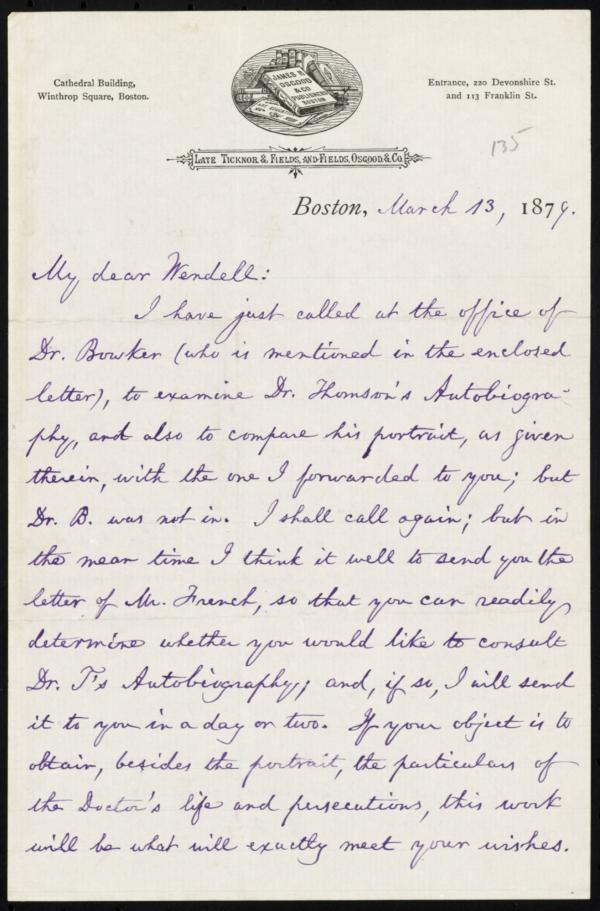 Cathedral Building,
Winthrop Square, Boston.
Entrance, 220 Devonshire St.
and 113 Franklin St.
JAMES R.
OSGOOD
& CO
PUBLISHERS
BOSTON
LATE TICKNOR & FIELDS, AND FIELDS, OSGOOD & CO.
135
Boston, March 13, 1879.
My dear Wendell:
I have just called at the office of
Dr. Bowker (who is mentioned in the enclosed
letter), to examine Dr. Thomson's Autobiogra-
phy, and also to compare his portrait, as given
therein, with the one I forwarded to you; but
Dr. B. was not in. I shall call again; but in
the mean time I think it well to send you the
letter of Mr. French, so that you can readily
determine whether you would like to consult
Dr. T's Autobiography; and, if so, I will send
it to you in a day or two. If your object is to
obtain, besides the portrait, the particulars of
the Doctor's life and persecutions, this work
will be what will exactly meet your wishes.